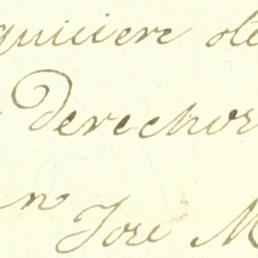 quiciere ote
Derechos
n Jose M